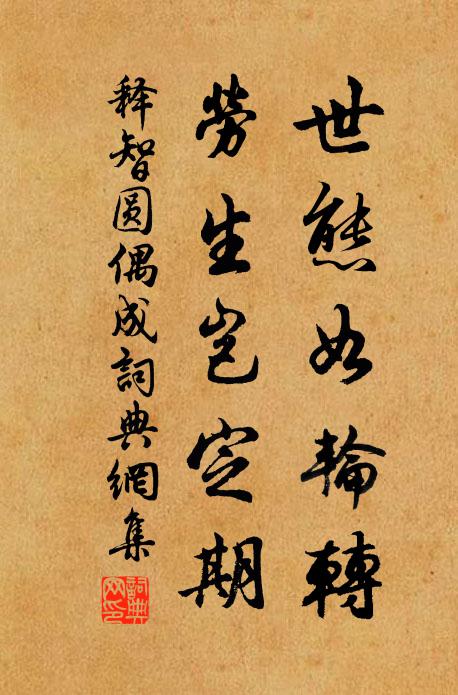 世態如輪轉
勞生豈定期
释智圆偶成詞典網集
詞典网印